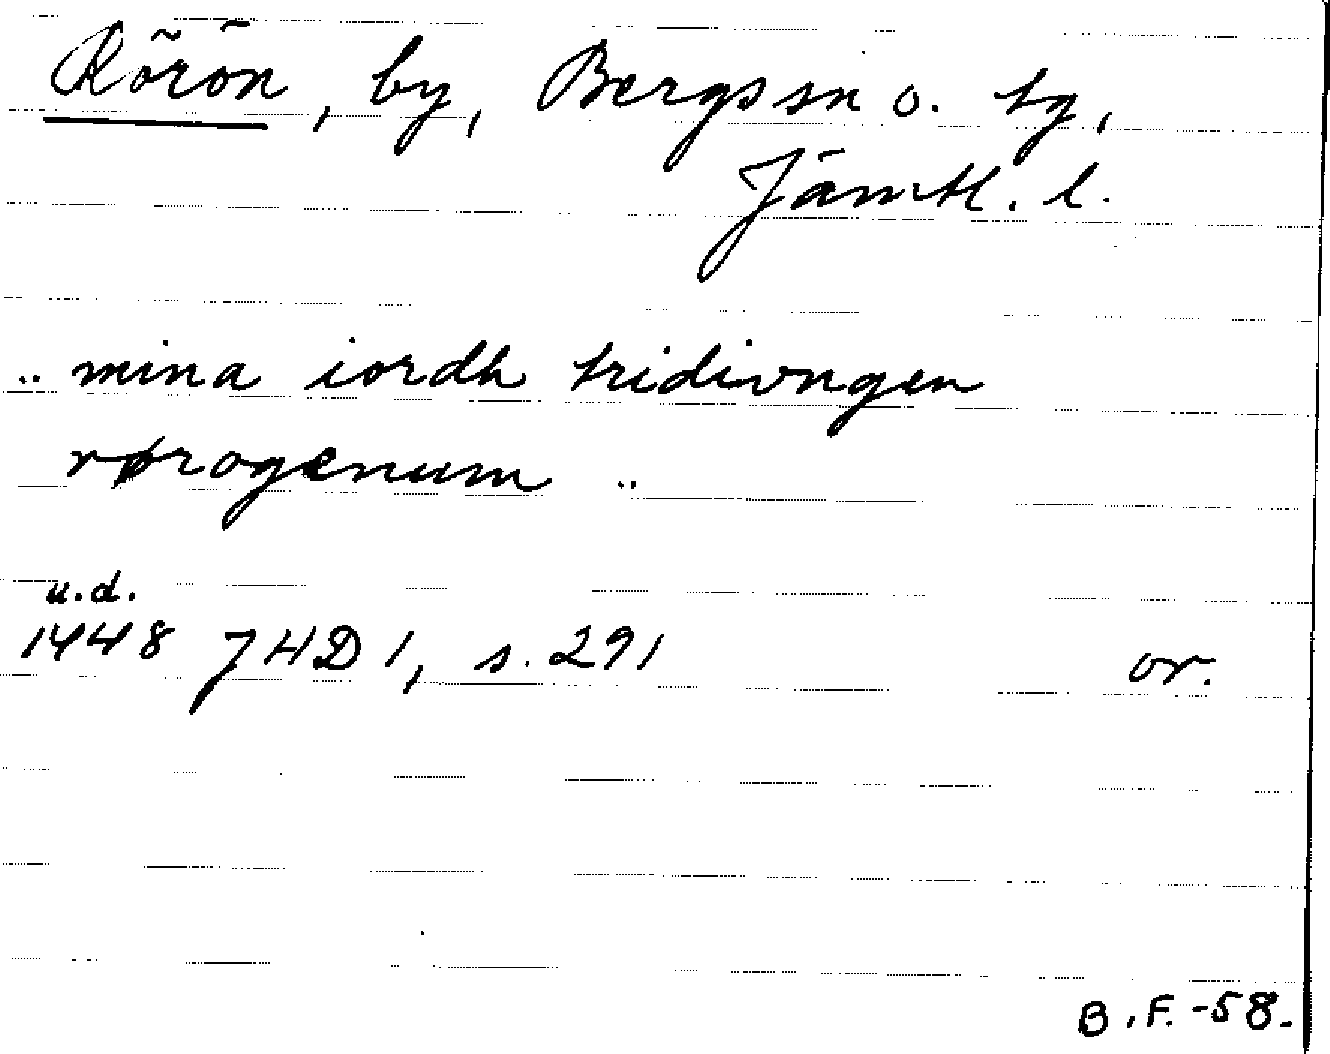 Rörön, by, Bergs sn o. tg,
Jämtl. l.
.. mina iordh tridivngen
rørogenum ..
u.d.
1448 JHD 1, s. 291 or.
B.F. -58.